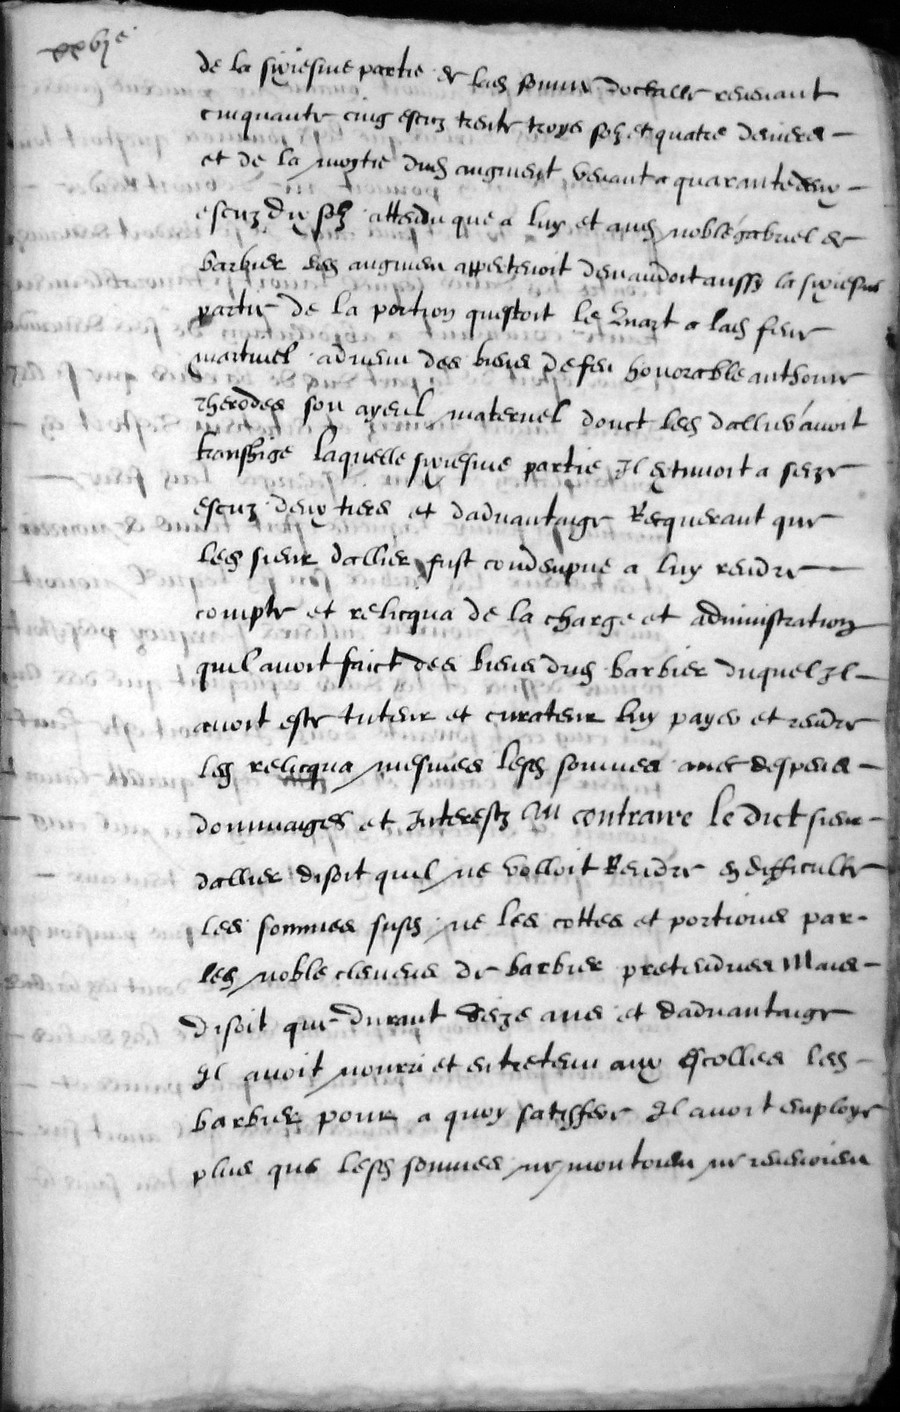 xxvje
de la sixiesme partie de lad somme dochalle revenant
cinquante cinq escuz trente troys solz et quatre deniers
et de la moytie dud augment venant a quarante deux
escuz dix solz attendu que a luy et aud noble gabriel de
barbier led augment appertenoit demandoit aussy la sixiesme
partie de la portion questoit le quart a lad feue
advenu des biens de feu honorable anthoine
rherodes son ayeul maternel dont led dallier avoit
transhige laquelle sixiesme partie Il extimoit a seize
escuz deux tiers et dadvantaige Requerant que
led sieur dallier fust condempne a luy rendre
compte et relicqua de la charge et administration
quil avoit faict des biens dud barbier duquel Il
avoit este tuteur et curateur luy payer et rendre
led relicqua mesmes lesd sommes avec despens
dommaiges et Interestz Au contraire le dict sieur
dallier disoit quil ne volloit Rendre en difficulte
les sommes susd ne les cottes et portions par
led noble clemens de barbier pretendues Mais
disoit que durant seize ans et dadvantaige
Il avoit nourri et entretenu aux escolles led
barbier pour a quoy satisfere Il avoit employe
plus que lesd sommes ne montoien ne revenoien